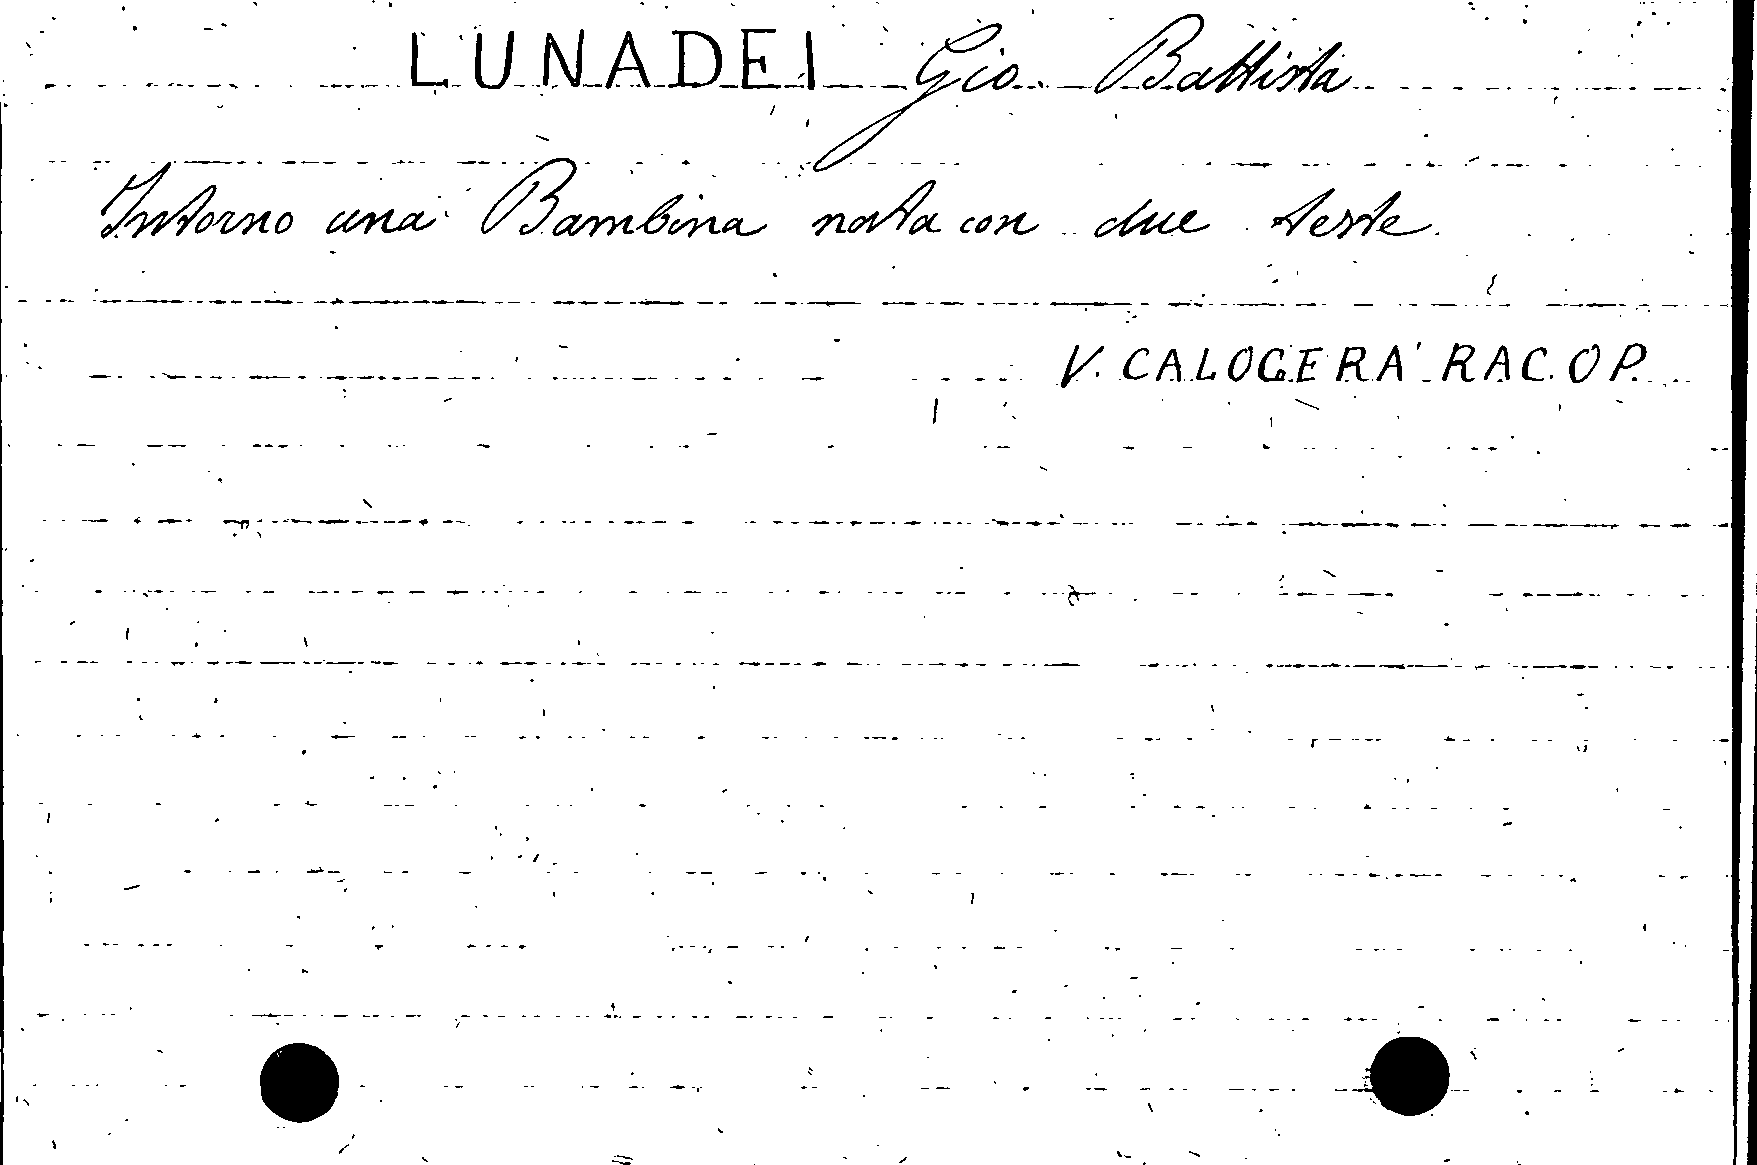 LUNADEI Gio. Battista
Intorno una Bambina nata con due teste.
V. CALOGERA' RAC. OP.